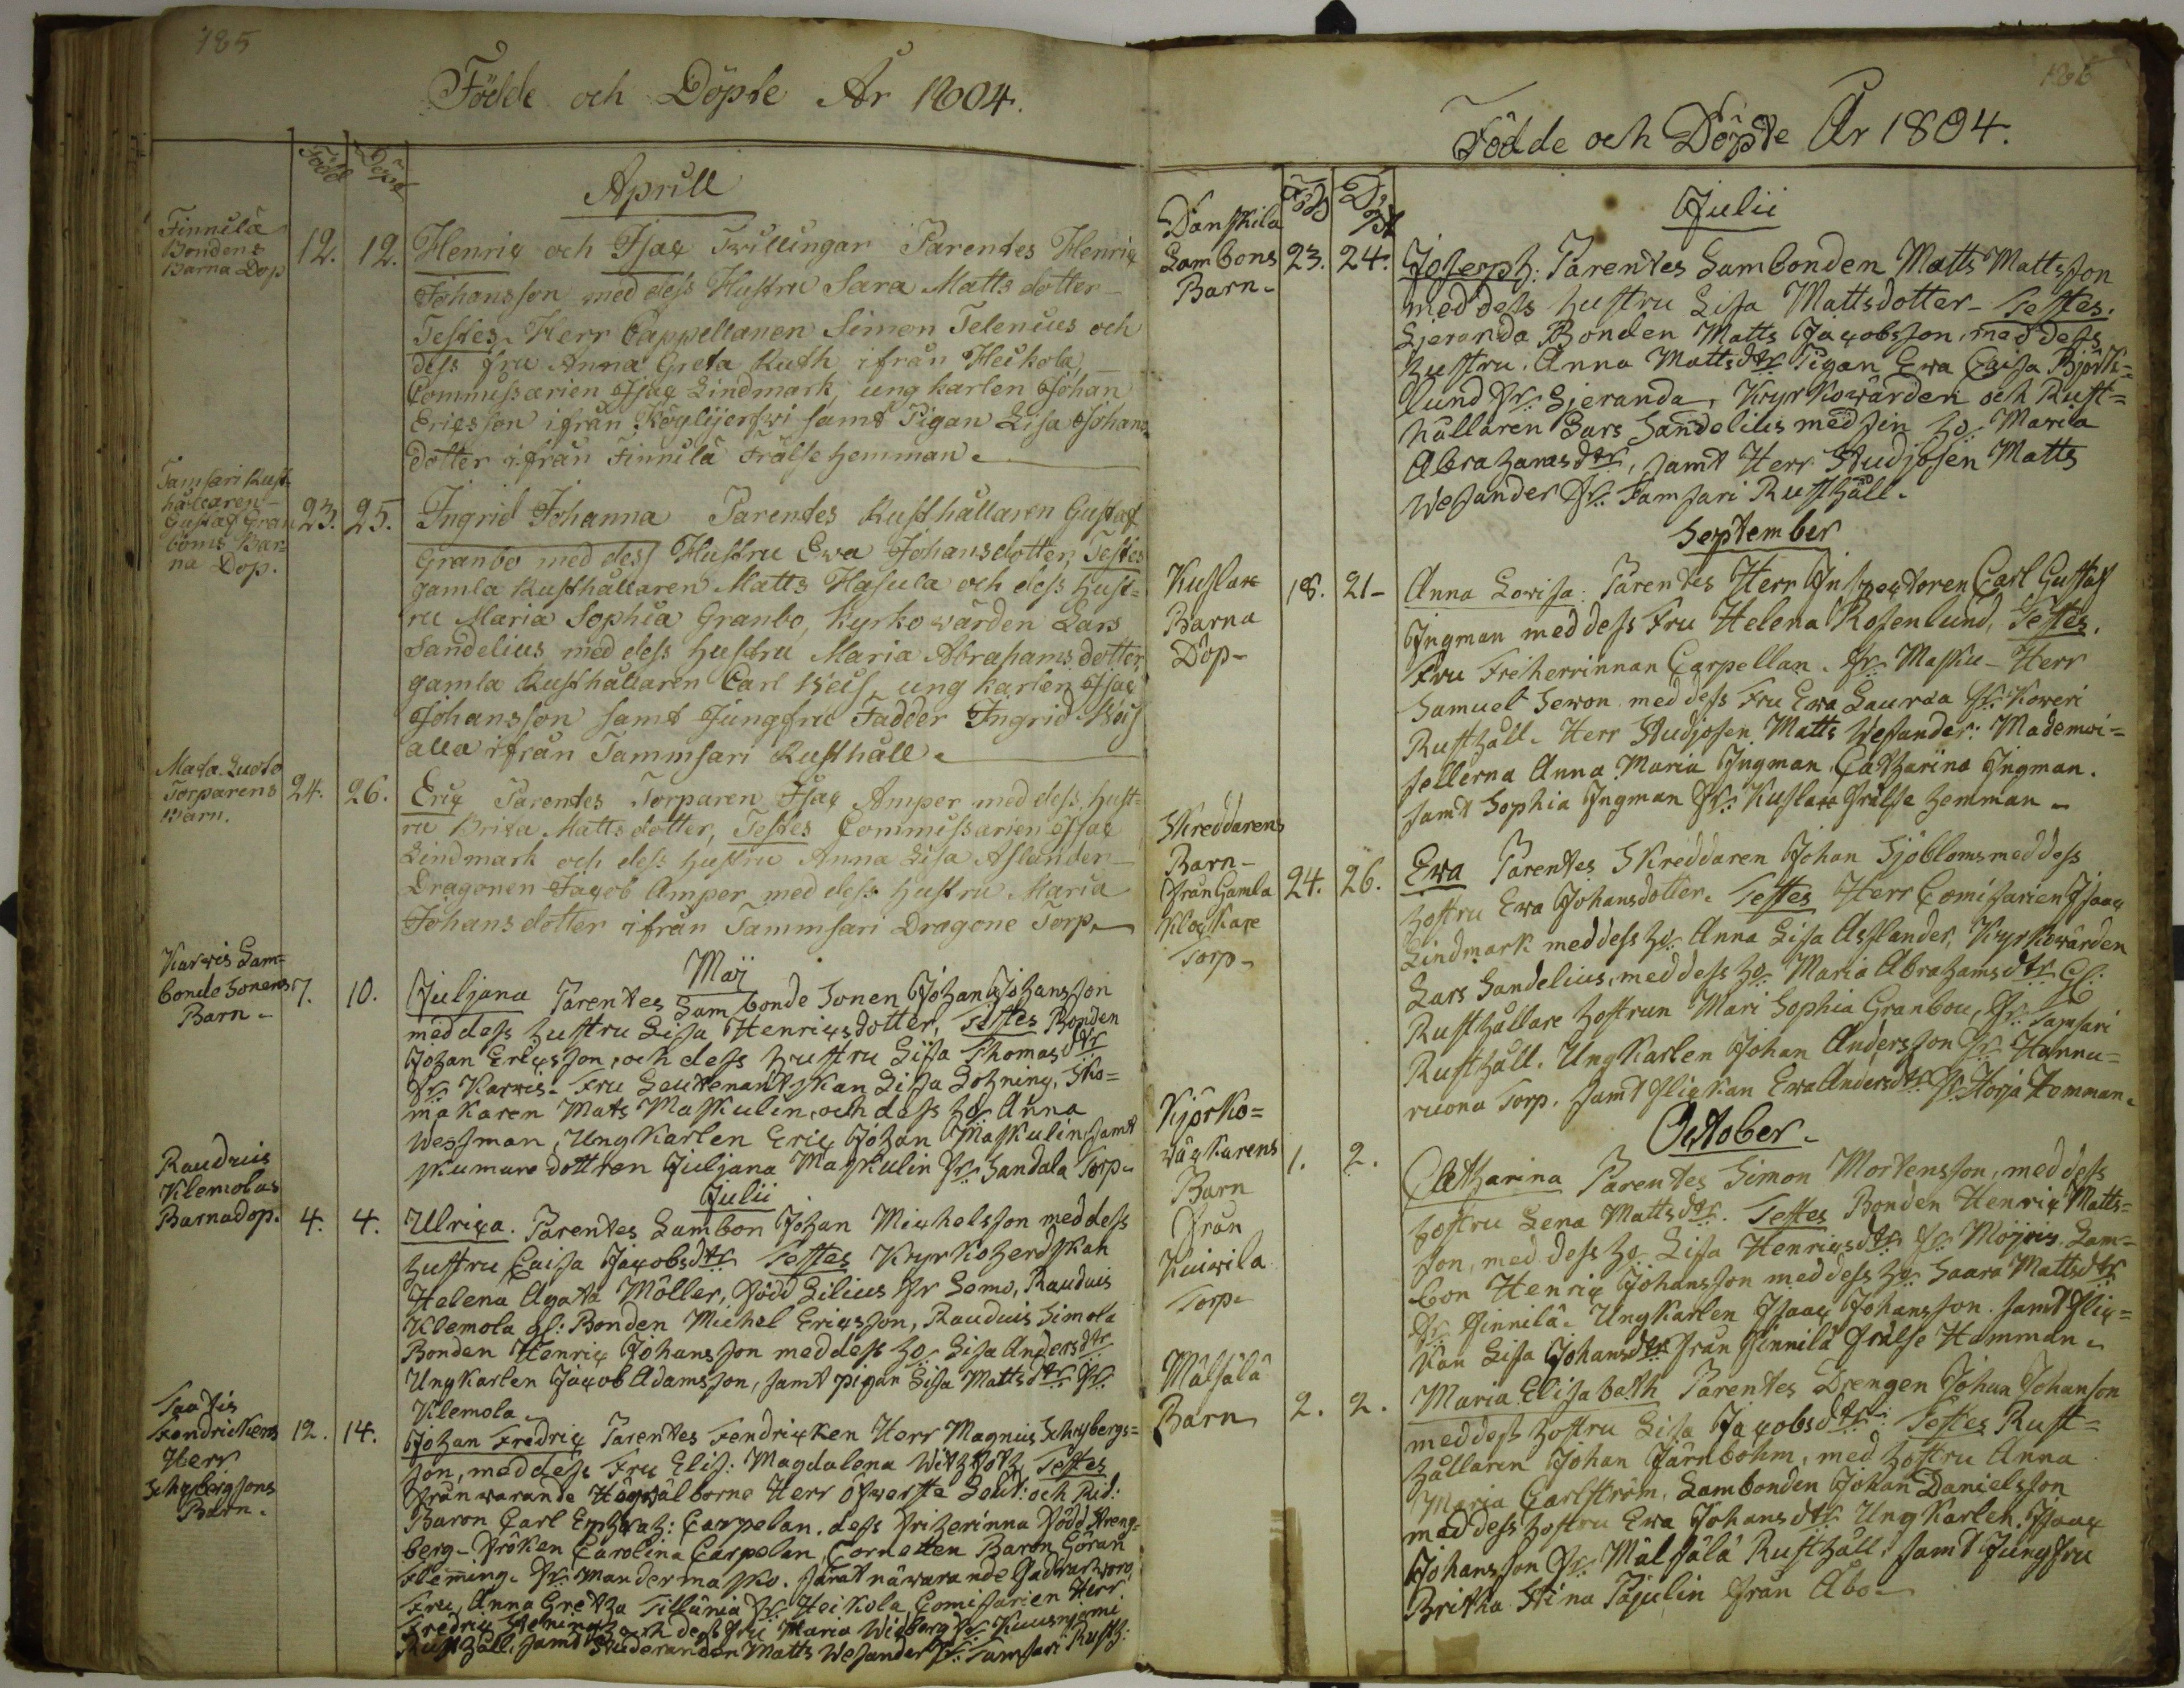 185
Födde och Döpte År 1804.
Född Döpt
Aprill
Finnilä
Bondens
Barna Dop
12. 12. Henric och Isac Twillingar Parentes Henric
Johansson med dess Hustru Sara Matts dotter
Testes Herr Cappellanen Simon Telenius och
dess fru Anna Greta Ruth ifrån Heikola
Commissarien Isac Lindmark, ung karlen Johan
Ericsson ifrån samt Pigan Lisa Johans
dotter ifrån Finnilä Frälse hemman.
Tamsari Rust
hållaren
Gustaf Gran
boms Bar
na Dop.
23. 25. Ingrid Johanna Parentes Rusthållaren Gustaf
Granbo med dess Hustru Ewa Johansdotter, Testes
gamla Rusthållaren Matts Hasula och dess hust=
ru Maria Sophia Granbo, Kyrko wärden Lars
Sandelius med dess hustru Maria Abrahams dotter,
gamla Rusthållaren Carl Weis, ung karlen Isac
Johansson samt Jungfru Fadder Ingrid Weis
alla ifrån Tammsari Rusthåll.
Mata Luoto
Torparens
Barn.
24. 26. Eric Parentes Torparen Isac Amper med dess hust=
ru Brita Matts dotter, Testes Commissarien Isac
Lindmark och dess hustru Anna Lisa Aslander
Dragonen Jacob Amper med dess hustru Maria
Johans dotter ifrån Tammsari Dragone Torp.
Maj
Karwis Lam=
bonde Sonens
Barn.
7. 10. Juljana Parentes Lambonde Sonen Johan Johansson
med dess hustru Lisa Henricsdotter, Testes Bonden
Johan Ericsson, och dess hustru Lisa Thomasdtr
fr. Karwis. Fru Leutenantskan Lisa Lohning, Sko=
makaren Mats Maskulin, och dess ho Anna
Wessman, Ungkarlen Eric Johan Maskulin, samt
skumare dottren Juljana Maskulin fr. Sandala Torp.
Julii
Raudvis
Klemolas
Barnadop.
4. 4. Ulrica. Parentes Lambon Johan Michelsson med dess
hustru Caisa Jacobsdtr Testes Kyrkoherdskan
Helena Agata Möller, född Lilius fr Lemo, Rauduis
Klemola gl: Bonden Michel Ericsson, Rauduis Simola
Bonden Henric Johansson med dess ho Lisa Andersdtr
Ungkarlen Jacob Adamsson, samt pigan Lisa Mattsdtr fr.
Klemola.
Taatis
Fendrickens
Herr
Schybergsons
Barn.
12. 14. Johan Fredric Parentes Fendricken Herr Magnus Schybergs=
son, med dess Fru Elis: Magdalena Testes
frånwarande Högwälborne Herr öfwerste Leut: och Rid:
Baron Carl Carpelan, dess friherinna född
berg. fröken Carolina Carpelan, Cornetten Baron Göran
Fleming, fr. samt närwarande
Fru, Anna Gretha Tillania fr. Heikola Comisarien Herr
Fredric och dess fru Maria Wiberg fr. Kuusniemi
Rusthåll, samt Studeranden Matts Wesander fr. Tamsari Rusth:
186
Födde och Döpte År 1804.
Född Döpt
Julii
Danskila
Lambons
Barn.
23. 24. Joseph: Parentes Lambonden Matts Mattsson
med dess hustru Lisa Mattsdotter - Testes.
Ljeranda Bonden Matts Jacobsson, med dess
hustru, Anna Mattsdtr Pigan Ewa Caisa Björk=
lund fr. Ljeranda, Kyrkowärden och Rust=
hållaren Lars Sandelius med sin ho Maria
Abrahamsdtr, samt Herr Studjosen Matts
Wesander fr. Tamsari Rusthåll.
September
Kuslax
Barna
Dop-
18. 21- Anna Lovisa: Parentes Herr Inspectoren Carl Gustaf
Ingman med dess Fru Helena Rosenlund, Testes.
Fru Friherrinnan Carpellan. fr. Masku - Herr
Samuel Sewon med dess Fru Ewa Lauraa fr. Koweri
Rusthåll. Herr Studjosen Matts Wesander: Mademoi=
sellerna Anna Maria Ingman, Catharina Ingman.
samt Sophia Ingman fr. Kuslaxa frälse hemman.
Skreddarens
Barn-
från Gamla
Klockare
Torp-
24. 26. Ewa Parentes Skreddaren Johan Sjöbloms med dess
hostru Ewa Johansdotter. Testes Herr Comisarien Isaac
Lindmark med dess ho Anna Lisa Aslander, Kyrkowärden
Lars Sandelius, med dess ho Maria Abrahamsdtr Gl:
Rusthållare hostrun Mari Sophia Granbou, fr. Tamsari
Rusthåll. Ungkarlen Johan Andersson fr. Hannu=
ruona Torp. samt flickan Ewa Andersdtr fr. Horja Hemman.
October.
Kjörko=
wäckarens
Barn
från
Kuiwila
Torp.
1. 2. Catharina Parentes Simon Mortensson, med dess
hostru Lena Mattsdtr. Testes Bonden Henric Matts=
son, med dess ho Lisa Henricsdtr fr. Möjris. Lam=
bon Henric Johansson med dess ho Saara Mattsdtr
fr. finnilä. Ungkarlen Isaac Johansson. samt flic=
kan Lisa Johansdtr från finnilä frälse Hamman.
Mälsälä
Barn
2. 2. Maria Elisabeth Parentes Drengen Johan Johanson
med dess hostru Lisa Jacobsdtr. Testes Rust=
hållaren Johan Järnbohm, med hostru Anna
Maria Carlström, Lambonden Johan Danielsson
med dess hostru Ewa Johansdtr Ungkarlen Isaac
Johansson fr. Mälsälä Rusthåll, samt Jungfru
Britha Stina Pajulin från Åbo.